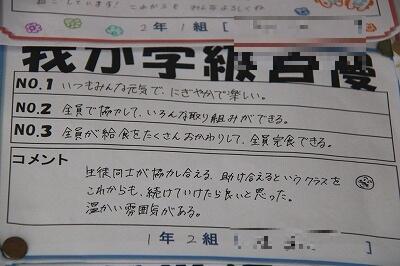 2年1組[
我が学級自慢
NO.1 いつもみんな元気で、にぎやかで楽しい。
NO.2 全員で協力して、いろんな取り組みができる。
NO.3 全員が給食をたくさんおかわりして、全員完食できる。
コメント
生徒同士が協力し合える、助け合えるというクラスを
これからも、続けていけたら良いと思った。
温かい雰囲気がある。
1年2組[